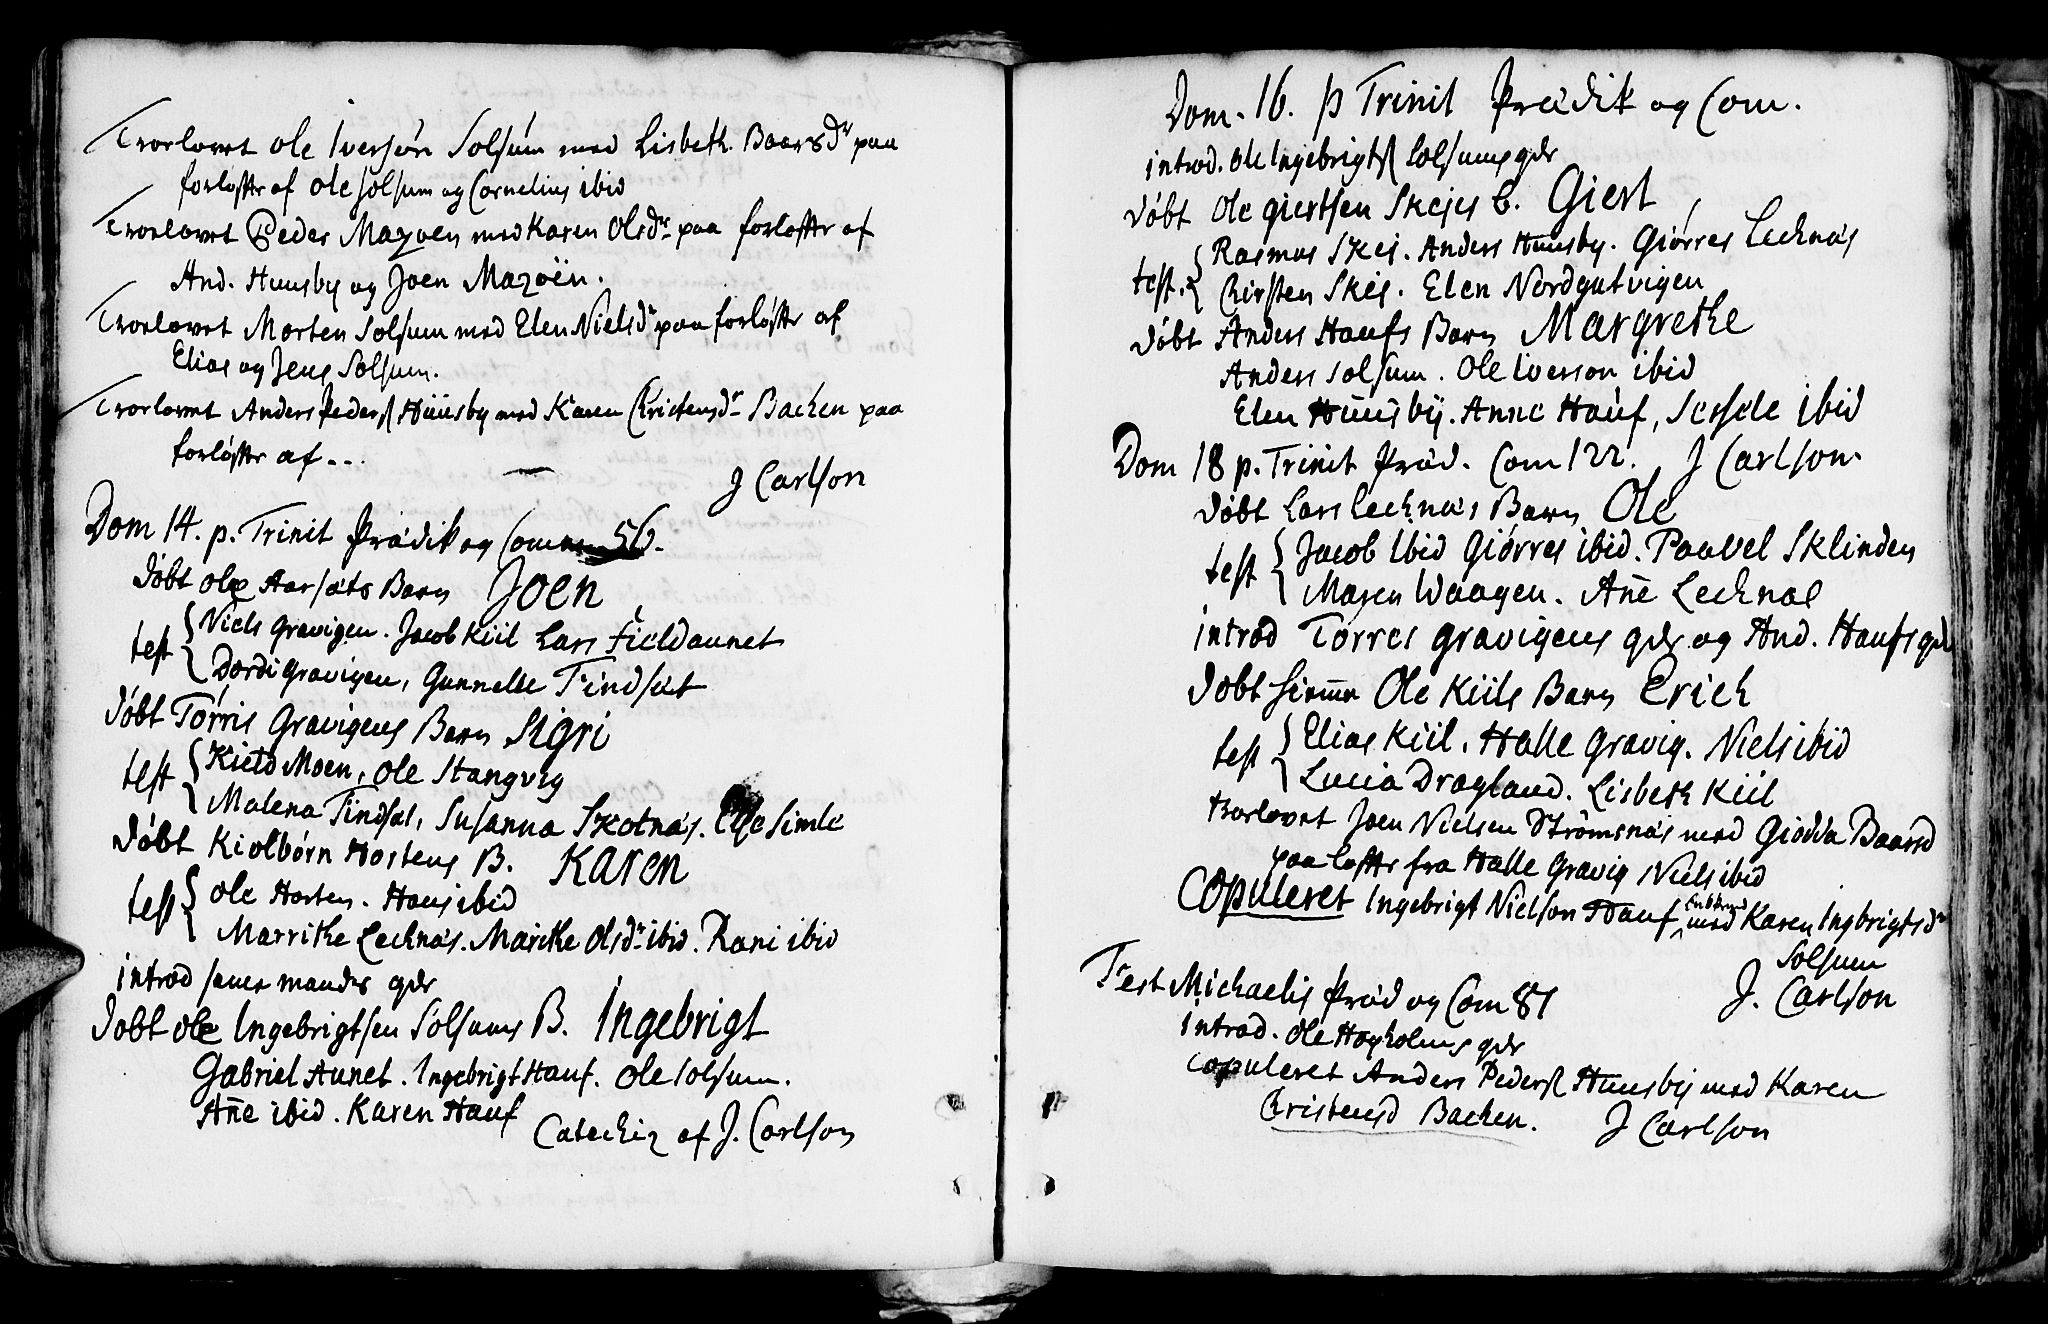 Trorlovet Ole Iversøn Solsum med Lisbeth Baarsdr paa
forløffte af Ole Solsum og Cornelius ibid
Trorlovet Peder Mazoen med Karen Olsdr paa forløffte af
And. Huusby og Joen Mazoën.
Trorlovet Morten Solsum med Elen Nielsdr paa forløffte af
Elias og Jens Solsum.
Trorlovet Anders Peders. Huusby med Karen Christensdr Bachen paa
forløffte af - -
J Carlson
Dom 14. p. Trinit Prædik og Com 56.
døbt Ole Aarsæts Barn Joen
test { Niels Gravigen. Jacob Kiil Lars Fieldaunet
Dordi Gravigen, Gunnelle Tindsæt
døbt Torris Gravigens Barn Sigri
test { Kield Moen, Ole Stangvig
Malena Tindsæt, Susanna Skotnæs. Simle
døbt Kiolbørn Hortens B. Karen
test { Ole Horten. Hans ibid
Marrithe Lechnæs. Marithe Olsdr ibid. Rani ibid
introd samme mandes qdr
døbt Ole Ingebrigtsen Solsums B. Ingebrigt
Gabriel Aunet. Ingebrigt Hauf. Ole Solsum.
Añe ibid. Karen Hauf
Catechiz af J. Carlson
Dom. 16. p Trinit Prædik og Com.
introd. Ole Ingebrigts. Solsums qdr
døbt Ole Giertsen Skejes B. Giert
test. { Rasmus Skei. Anders Huusby. Giørres Lechnæs
Chirsten Skej. Elen Nordgutvigen
døbt Anders Haufs Barn Margrethe
Anders Solsum. Ole Iverson ibid
Elen Huusbÿ. Anne Hauf, Sessele ibid
Dom 18 p. Trinit Præd. Com 122. J Carlson.
døbt Lars Lechnæs Barn Ole
test { Jacob ibid Giørres ibid. Paavel Sklinden
Maren Waagen. Añe Lechnæs
introd Torres Gravigens qdr og And. Haufs qdr
døbt Ole Kiils Barn Erich
test { Elias Kiil. Halle Gravig. Niels ibid
Lucia Dragland. Lisbeth Kiil
trorlovet Joen Nielsen Strømsnæs med Giodda Baarsd
paa løffte fra Halle Gravig Niels ibid
Copuleret Ingebrigt Nielson Hauf med Karen Ingbrigtsdr
Solsum
J. Carlson
Fest Michaelis Præd og Com 81
introd. Ole Høyholms qdr
Copuleret Anders Peders. Huusby med Karen
Christensd Bachen. J Carlson